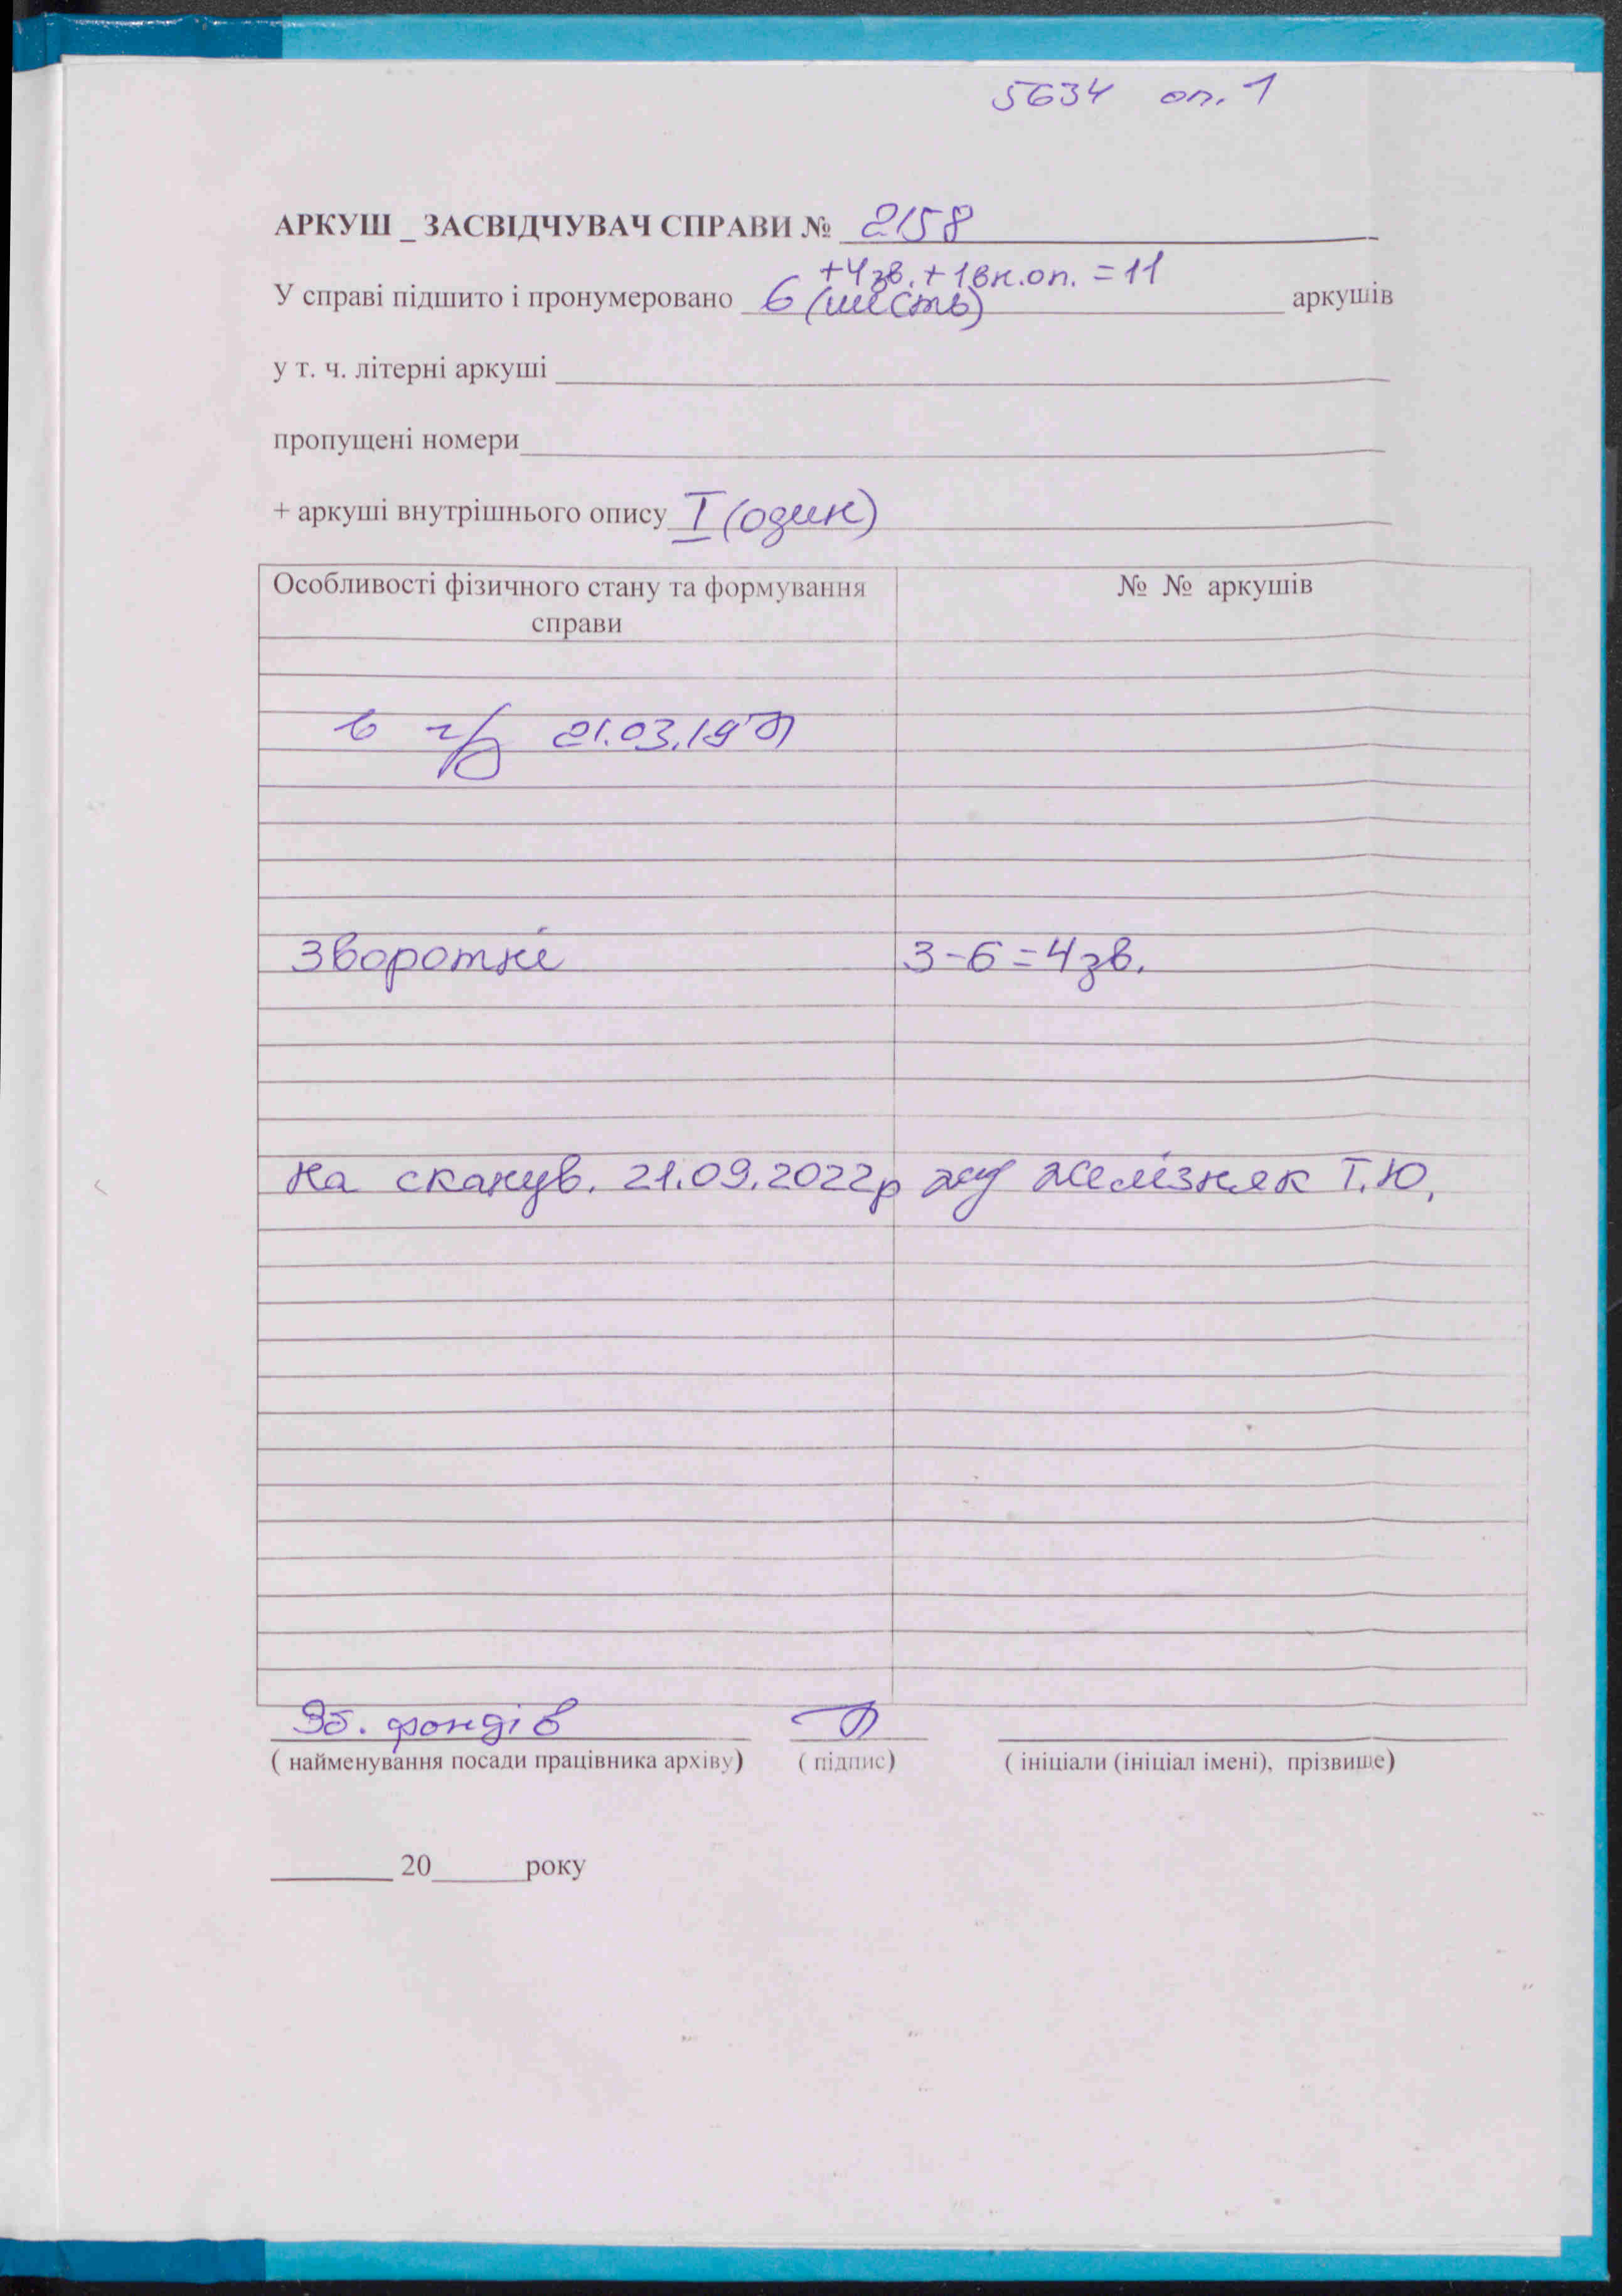 5634 оп. 1
АРКУШ _ ЗАСВІДЧУВАЧ СПРАВИ № 2158
+4зв. + 1вн.оп. = 11
У справі підшито і пронумеровано 6 (шість) аркушів
у т. ч. літерні аркуші
пропущені номери
+ аркуші внутрішнього опису I (один)
Особливості фізичного стану та формування справи
№ № аркушів
в 21.03.19
Зворотні 3-6=4зв.
на сканув. 21.09.2022р Желізняк Т.Ю.
Зб. фондів
( найменування посади працівника архіву) ( підпис) ( ініціали (ініціал імені), прізвище)
20 року